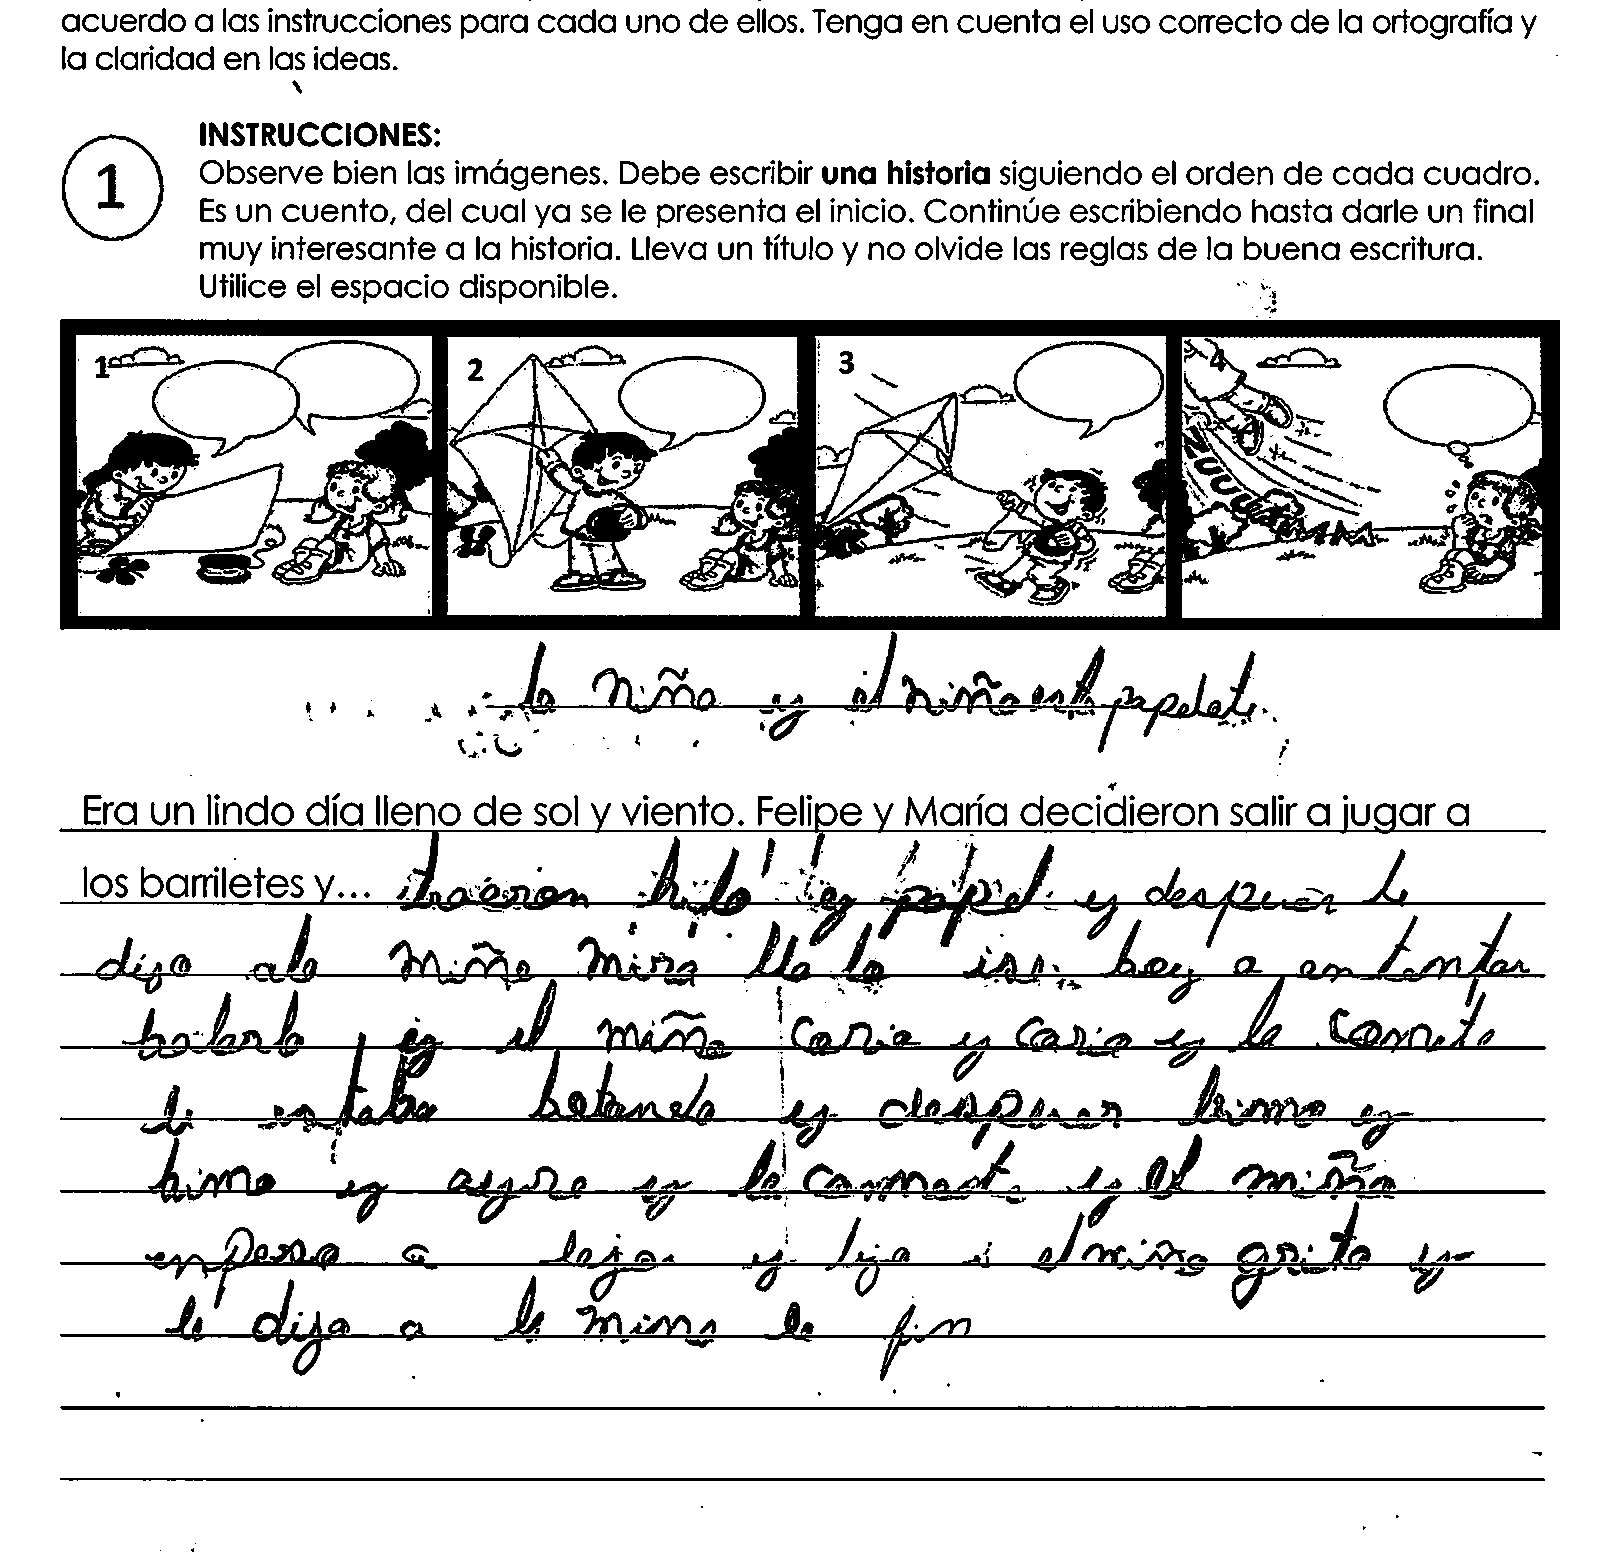 acuerdo a las instrucciones para cada uno de ellos. Tenga en cuenta el uso correcto de la ortografía y
la claridad en las ideas.
1
INSTRUCCIONES:
Observe bien las imágenes. Debe escribir una historia siguiendo el orden de cada cuadro.
Es un cuento, del cual ya se le presenta el inicio. Continúe escribiendo hasta darle un final
muy interesante a la historia. Lleva un título y no olvide las reglas de la buena escritura.
Utilice el espacio disponible.
1 2 3 4
ZUUUU
la niña y el niño
Era un lindo día lleno de sol y viento. Felipe y María decidieron salir a jugar a
los barriletes y... traeron hilo y papel y despues le
dijo ala niña mira lla lo ise boy a ententar
bolarlo y el niño coria y coria y la cometa
le estaba bolando y despues bimo y
bimo y ayre y la y el niño
enpeso a y el niño grito y
le dijo a la nina fin